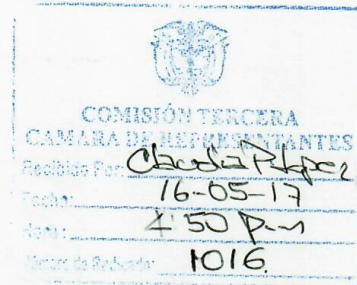 COMISIÓN TERCERA
CAMARA DE REPRESENTANTES
Recibido Por: Claudia P. López
Fecha: 16-05-17
Hora: 4:50 p.m
Número de Radicado: 1016